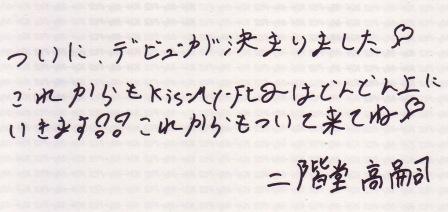 ついに、デビューが決まりました!!
これからもKis-My-Ft2はどんどん上に
いきます!!これからもついて来てね!!
二階堂 高嗣